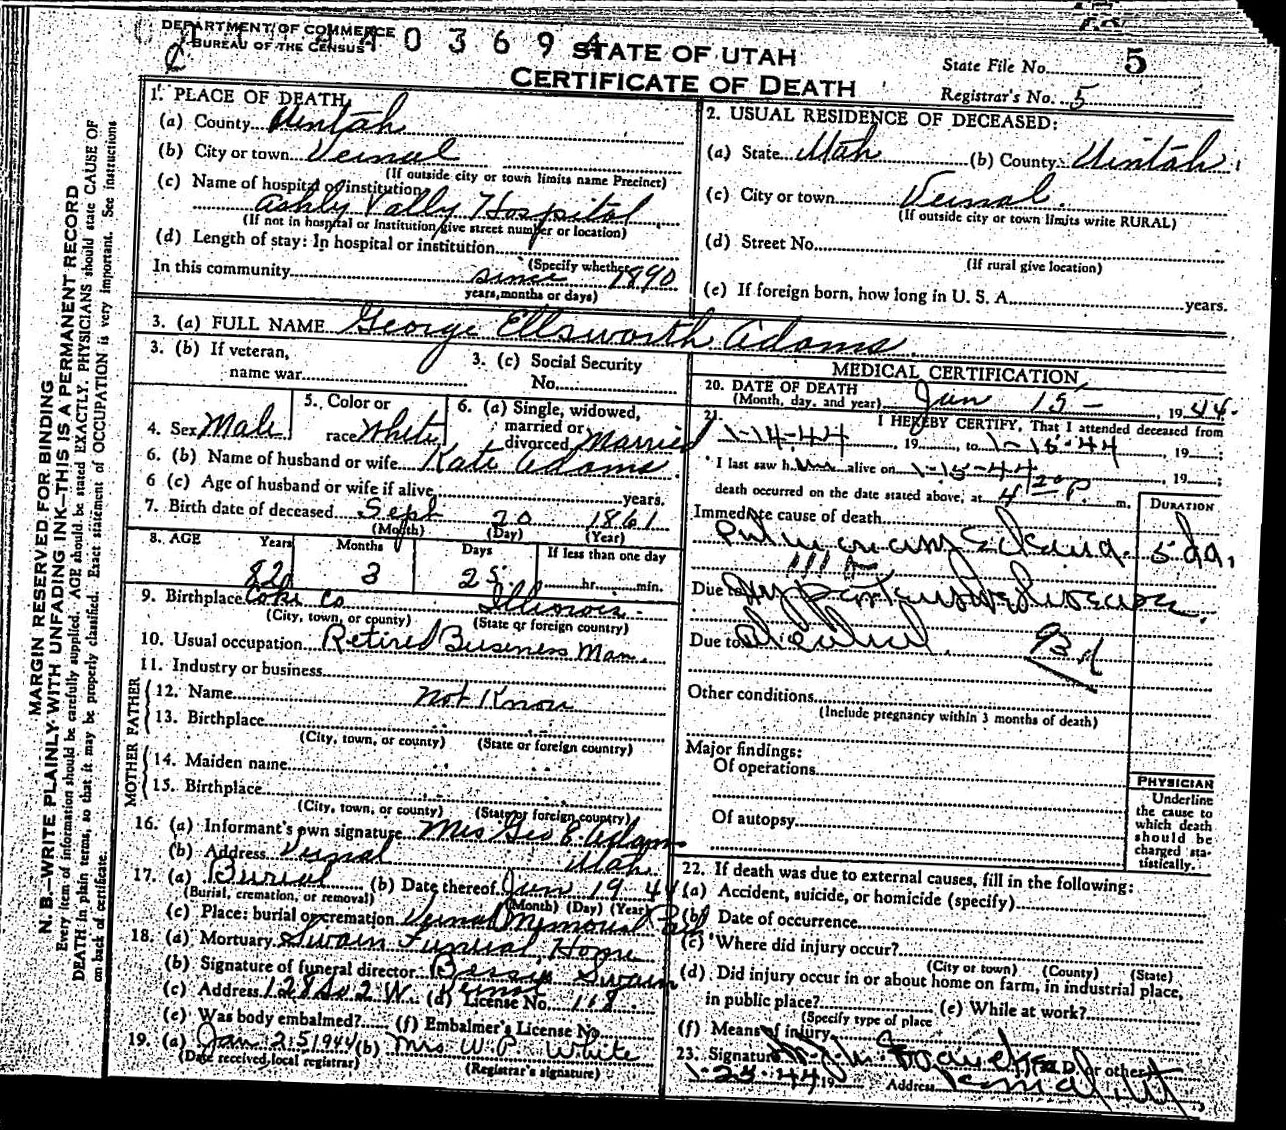 DEPARTMENT OF COMMERCE
BUREAU OF THE CENSUS
STATE OF UTAH
CERTIFICATE OF DEATH
State File No. 5
Registrar's No. 5
MARGIN RESERVED FOR BINDING
N. B.—WRITE PLAINLY WITH UNFADING INK—THIS IS A PERMANENT RECORD
Every item of information should be carefully supplied. AGE should be stated EXACTLY. PHYSICIANS should state CAUSE OF
DEATH in plain terms, so that it may be properly classified. Exact statement of OCCUPATION is very important. See instructions
on back of certificate.
1. PLACE OF DEATH
(a) County Uintah
(b) City or town Vernal
(If outside city or town limits name Precinct)
(c) Name of hospital or institution
Ashly Vally Hospital
(If not in hospital or institution give street number or location)
(d) Length of stay: In hospital or institution
(Specify whether
In this community since 1890
years, months or days)
2. USUAL RESIDENCE OF DECEASED:
(a) State Utah (b) County Uintah
(c) City or town Vernal
(If outside city or town limits write RURAL)
(d) Street No.
(If rural give location)
(e) If foreign born, how long in U. S. A. years.
3. (a) FULL NAME George Ellsworth Adams
3. (b) If veteran,
name war
3. (c) Social Security
No.
4. Sex Male
5. Color or
race White
6. (a) Single, widowed,
married or
divorced Married
6. (b) Name of husband or wife Kate Adams
6 (c) Age of husband or wife if alive years.
7. Birth date of deceased Sept 20 1861
(Month) (Day) (Year)
8. AGE Years Months Days If less than one day
82 3 25 hr. min.
9. Birthplace Co Illinois
(City, town, or county) (State or foreign country)
10. Usual occupation Retired Business Man
11. Industry or business
FATHER
12. Name not Know
13. Birthplace
(City, town, or county) (State or foreign country)
MOTHER
14. Maiden name
15. Birthplace
(City, town, or county) (State or foreign country)
16. (a) Informant's own signature Mrs Geo E. Adams
(b) Address Vernal Utah
17. (a) Burial (b) Date thereof Jan 19 44
(Burial, cremation, or removal) (Month) (Day) (Year)
(c) Place: burial or cremation Vernal Memorial
18. (a) Mortuary Swain Funeral Home
(b) Signature of funeral director: Bessie Swain
(c) Address 128 So 2 W. Vernal (d) License No. 118
(e) Was body embalmed? (f) Embalmer's License No.
19. (a) Jan 25 1944 (b) Mrs W P. White
(Date received local registrar) (Registrar's signature)
MEDICAL CERTIFICATION
20. DATE OF DEATH
(Month, day, and year) Jan 15 - , 19 44.
21. I HEREBY CERTIFY, That I attended deceased from
1-14-44 , 19 , to 1-15-44 , 19 ;
I last saw him alive on 1-15-44 , 19 ;
death occurred on the date stated above, at 4 20 P. m.
DURATION
Immediate cause of death
5 da.
Due to
Due to
93d
Other conditions
(Include pregnancy within 3 months of death)
Major findings:
Of operations
Of autopsy
PHYSICIAN
Underline
the cause to
which death
should be
charged sta-
tistically.
22. If death was due to external causes, fill in the following:
(a) Accident, suicide, or homicide (specify)
(b) Date of occurrence
(c) Where did injury occur?
(City or town) (County) (State)
(d) Did injury occur in or about home on farm, in industrial place,
in public place? (e) While at work?
(Specify type of place
(f) Means of injury
23. Signature M.D. or other
1-25-44 19 Address